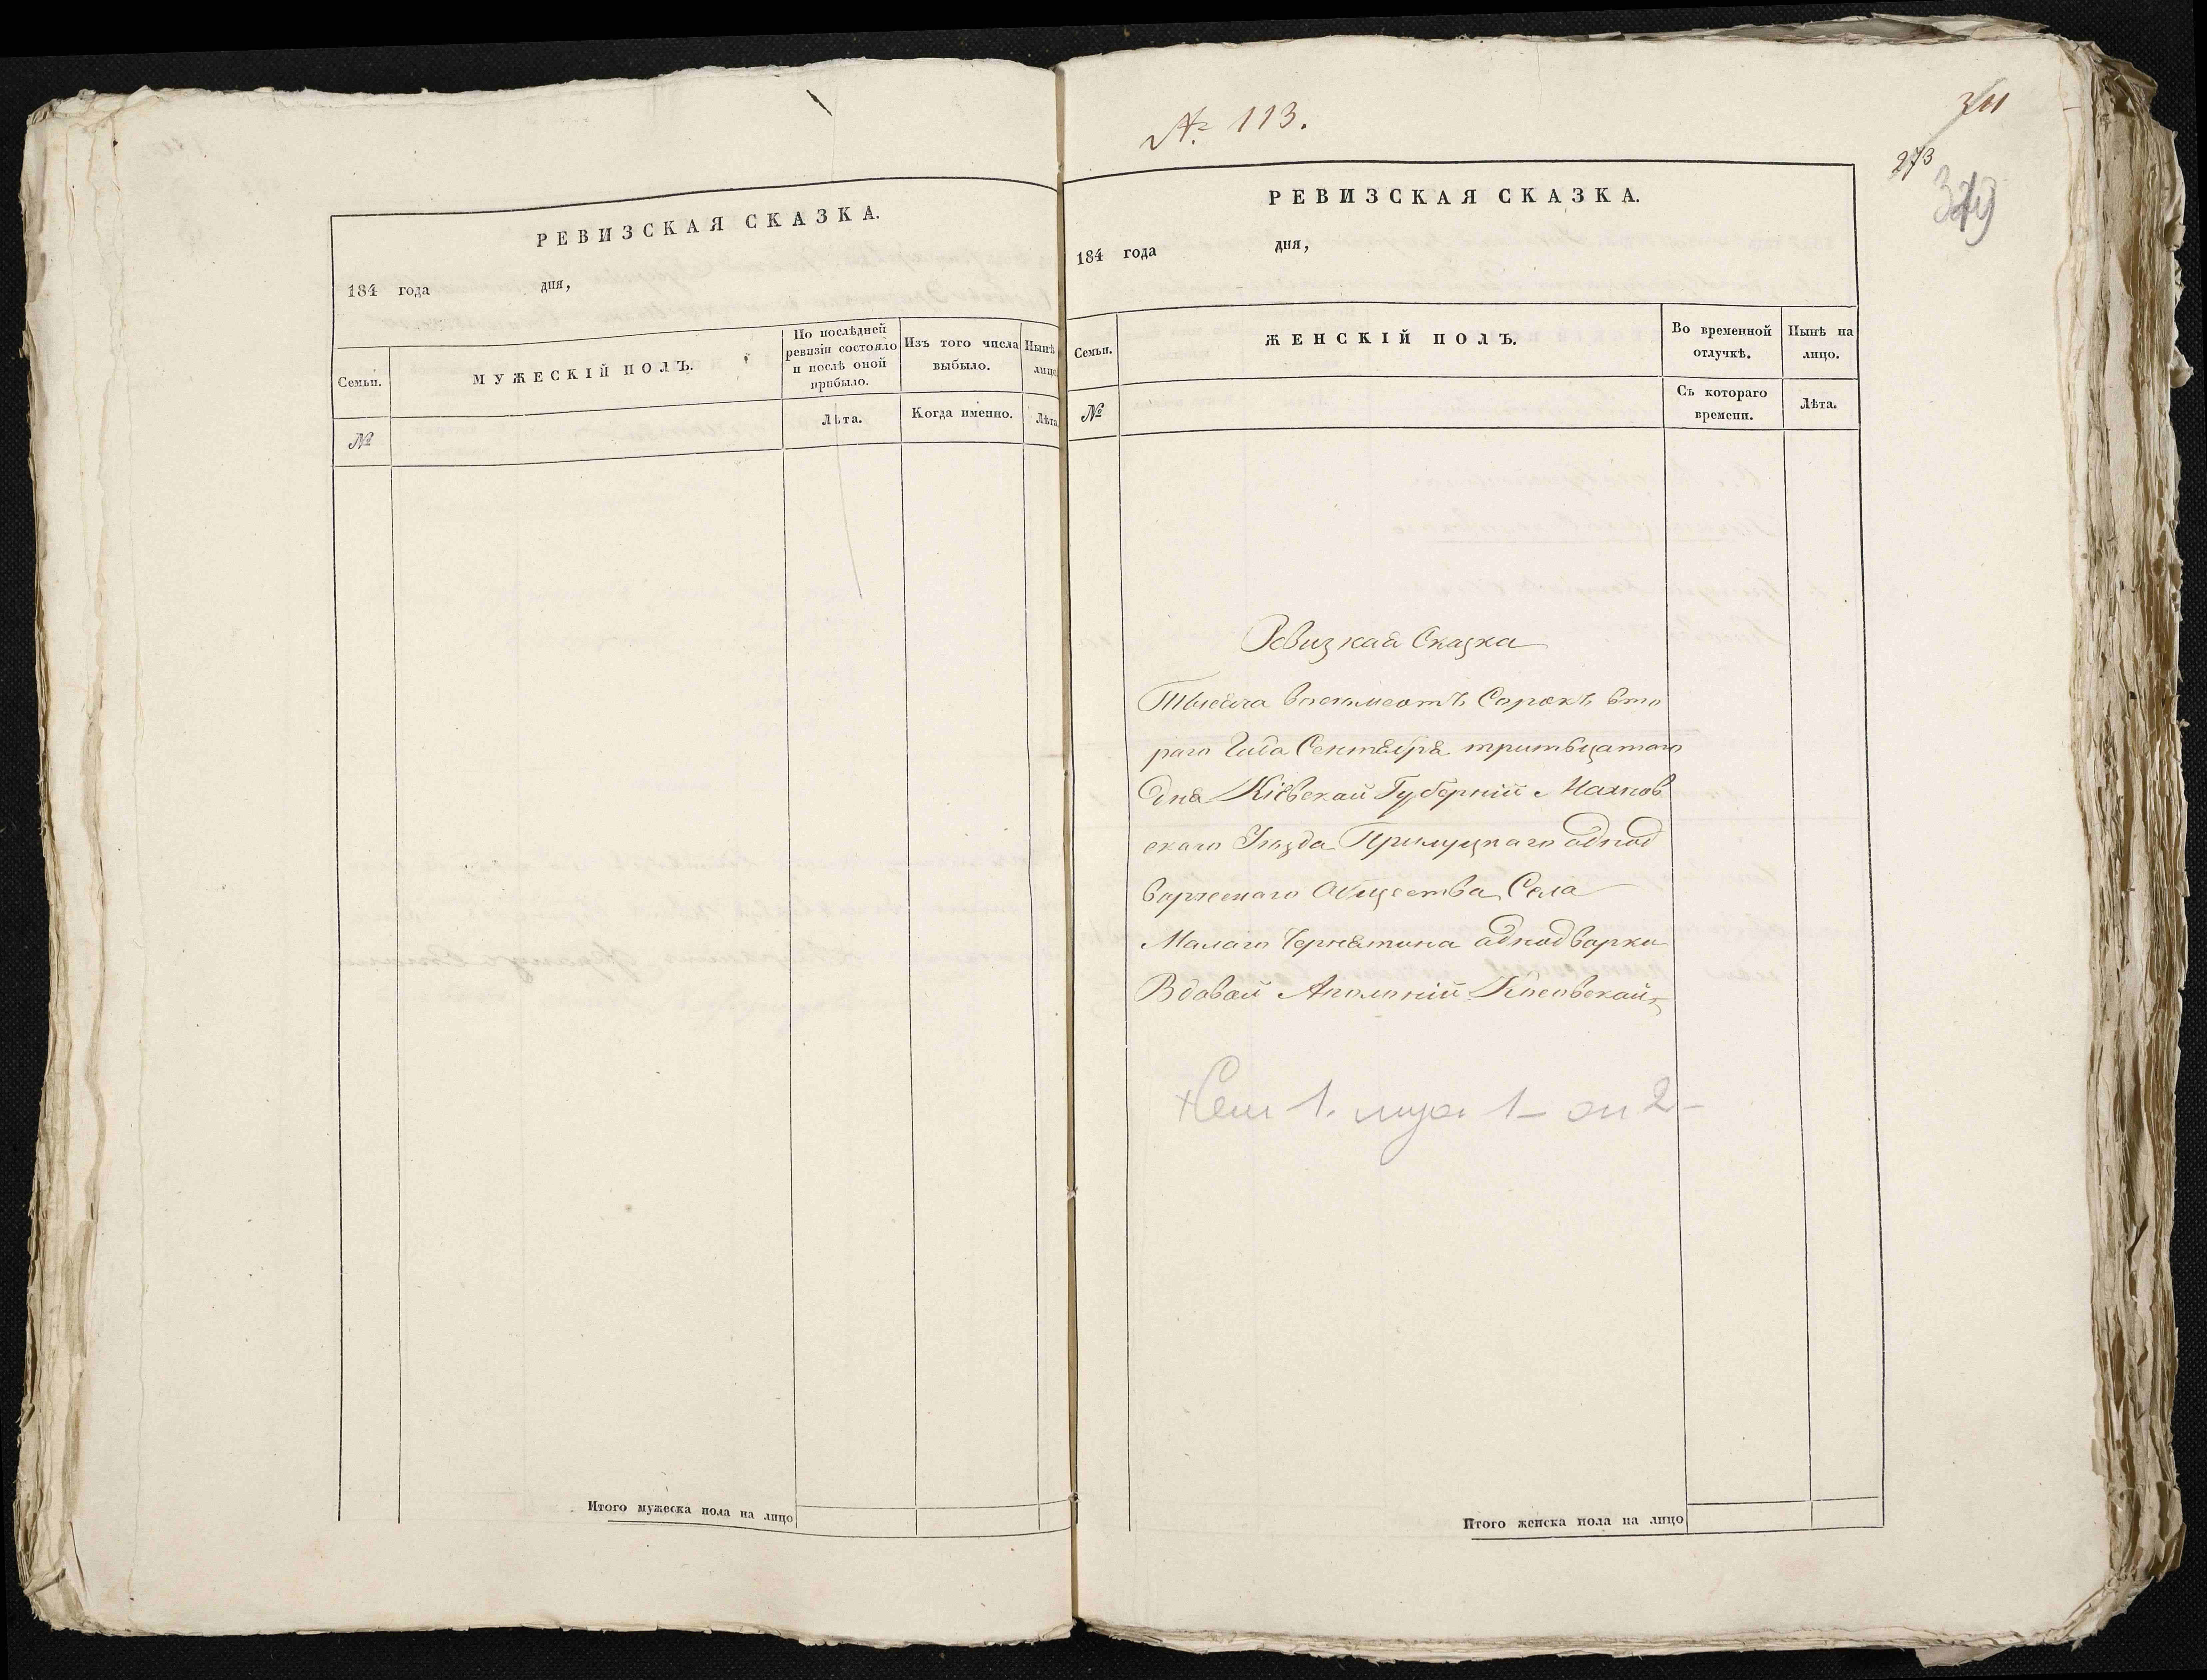 РЕВИЗСКАЯ СКАЗКА.
184 года дня,
Семьи.
МУЖЕСКІЙ ПОЛЪ.
По послѣдней ревизіи состояло и послѣ оной прибыло.
Изъ того числа выбыло.
Нынѣ лицо
№
Лѣта.
Когда именно.
Лѣта
Итого мужеска пола на лицо
№ 113.
311
273
379
РЕВИЗСКАЯ СКАЗКА.
184 года дня,
Семьи.
ЖЕНСКІЙ ПОЛЪ.
Во временной отлучкѣ.
Нынѣ на лицо.
№
Съ котораго времени.
Лѣта.
Ревизкая Сказка
Тысяча восемьсотъ Сорокъ вто
раго Года Сентября тритьцатаго
Дня Кіевской Губерніи Махнов
скаго Уѣзда Прилуцкаго однод
ворческаго Общества Села
Малаго Чернятина однодворки
Вдовой Аполоніи Косовской
1. муж. 1 – 2 –
Итого женска пола на лицо